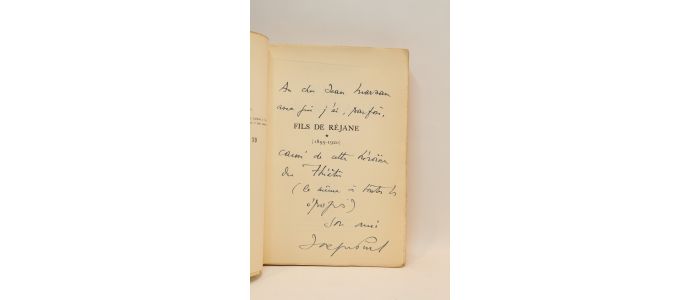 Au cher Jean Marsan
avec qui j'ai, parfois,
FILS DE RÉJANE
*
(1895-1920)
causé de cette héroïne
du Théâtre
(la même à toutes les
époques)
Son ami